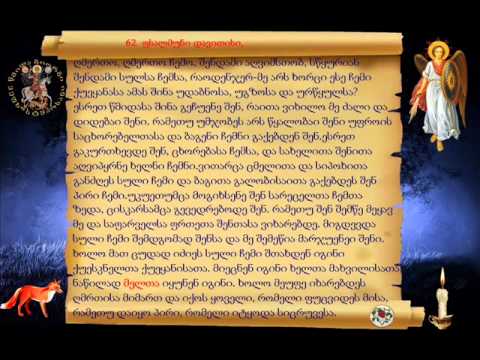 62. ფსალმუნი დავითისი,
ღმერთო, ღმერთო ჩემო, შენდამი აღვიმსთობ, სწყურიან
შენდამი სულსა ჩემსა, რაოდენჯერ-მე არს ხორცი ესე ჩემი
ქუეყანასა ამას შინა უდაბნოსა, უგზოსა და ურწყულსა?
ესრეთ წმიდასა შინა გეჩუენე შენ, რაითა ვიხილო მე ძალი და
დიდებაი შენი, რამეთუ უმჯობეს არს წყალობაი შენი უფროის
საცხორებელთასა და ბაგენი ჩემნი გაქებდენ შენ,ესრეთ
გაკურთხევდე შენ, ცხორებასა ჩემსა, და სახელითა შენითა
აღვიპყრნე ხელნი ჩემნი.ვითარცა ცმელითა და სიპოხითა
განძღეს სული ჩემი და ბაგითა გალობისაითა გაქებდეს შენ
პირი ჩემი.უკუეთუმცა მოგიხსენე შენ სარეცელთა ჩემთა
ზედა, ცისკარსამცა გვედრებოდე შენ, რამეთუ შენ შემწე მეყავ
მე და საფარველსა ფრთეთა შენთასა ვიხარებდე. მიგდევდა
სული ჩემი შემდგომად შენსა და მე შემეწია მარჯუენეი შენი,
ხოლო მათ ცუდად იძიეს სული ჩემი შთახდენ იგინი
ქუესკნელთა ქუეყანისათა. მიეცნენ იგინი ხელთა მახვილისათა,
ნაწილად მელთა იყუნენ იგინი. ხოლო მეუფე იხარებდეს
ღმრთისა მიმართ და იქოს ყოველი, რომელი ფუცვიდეს მისა,
რამეთუ დაიყო პირი, რომელი იტყოდა სიცრუვესა.